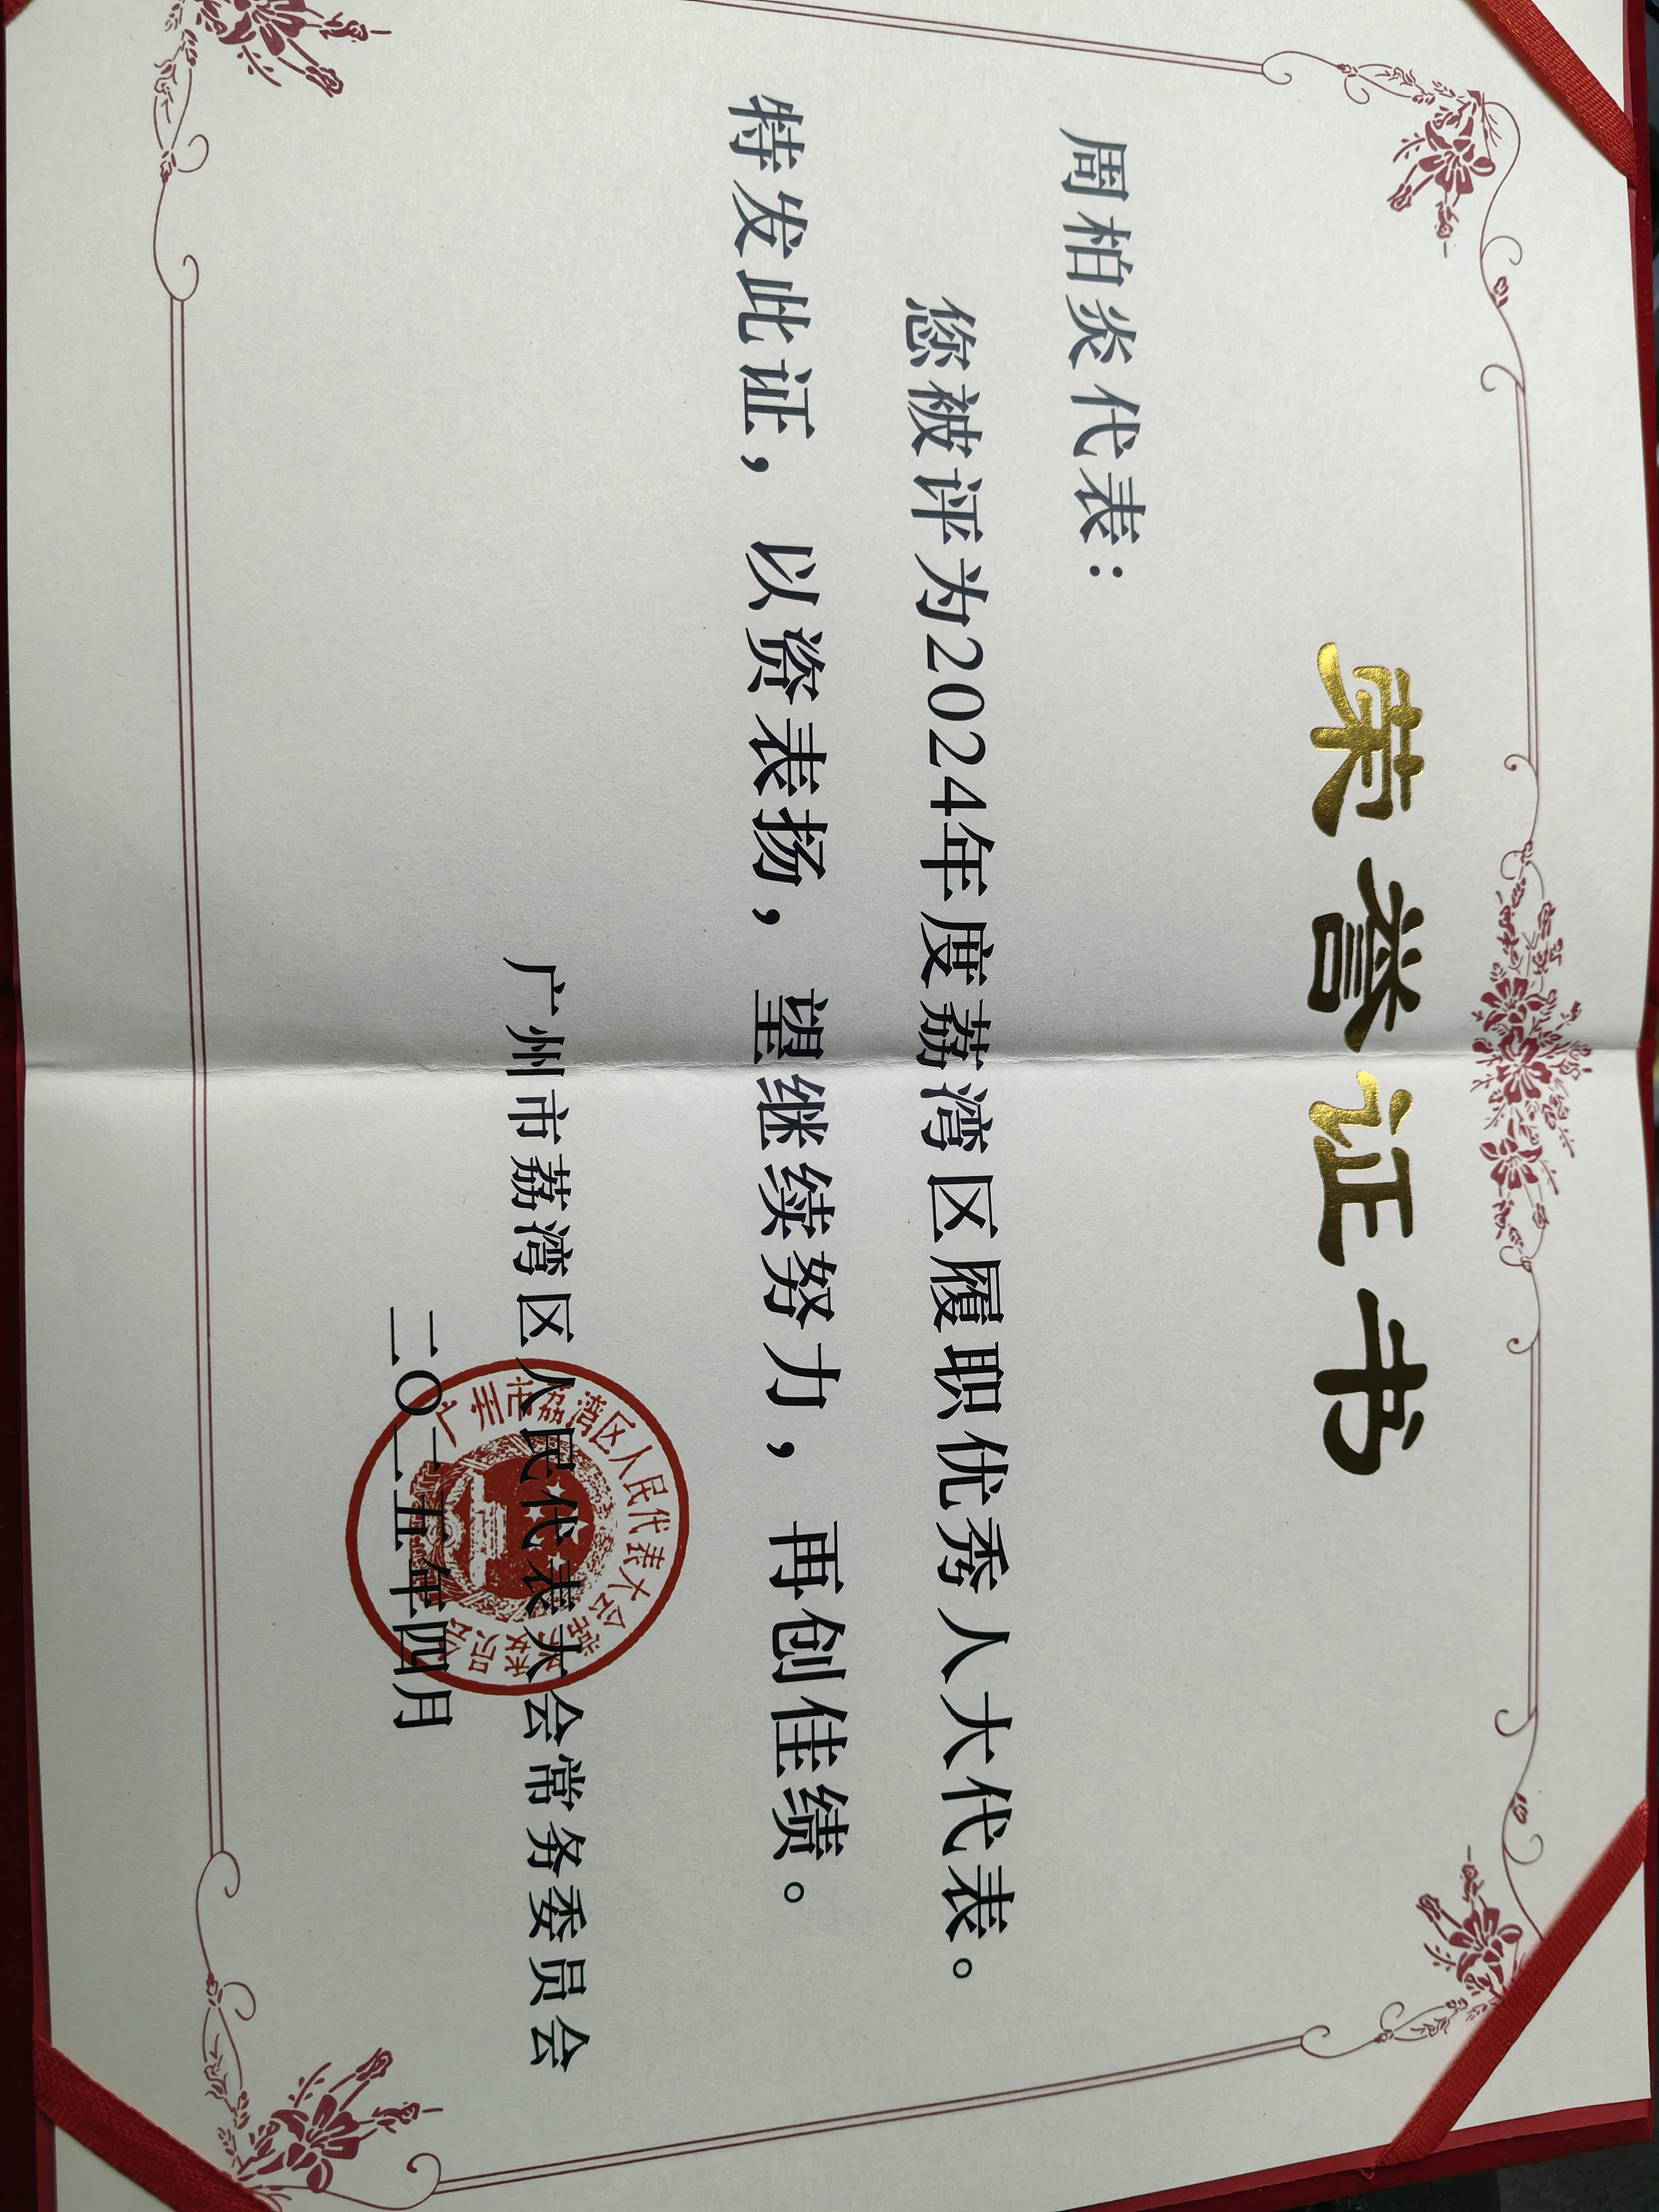 荣誉证书
周柏炎代表：
您被评为2024年度荔湾区履职优秀人大代表。
特发此证，以资表扬，望继续努力，再创佳绩。
广州市荔湾区人民代表大会常务委员会
二〇二五年四月
广州市荔湾区人民代表大会常务委员会